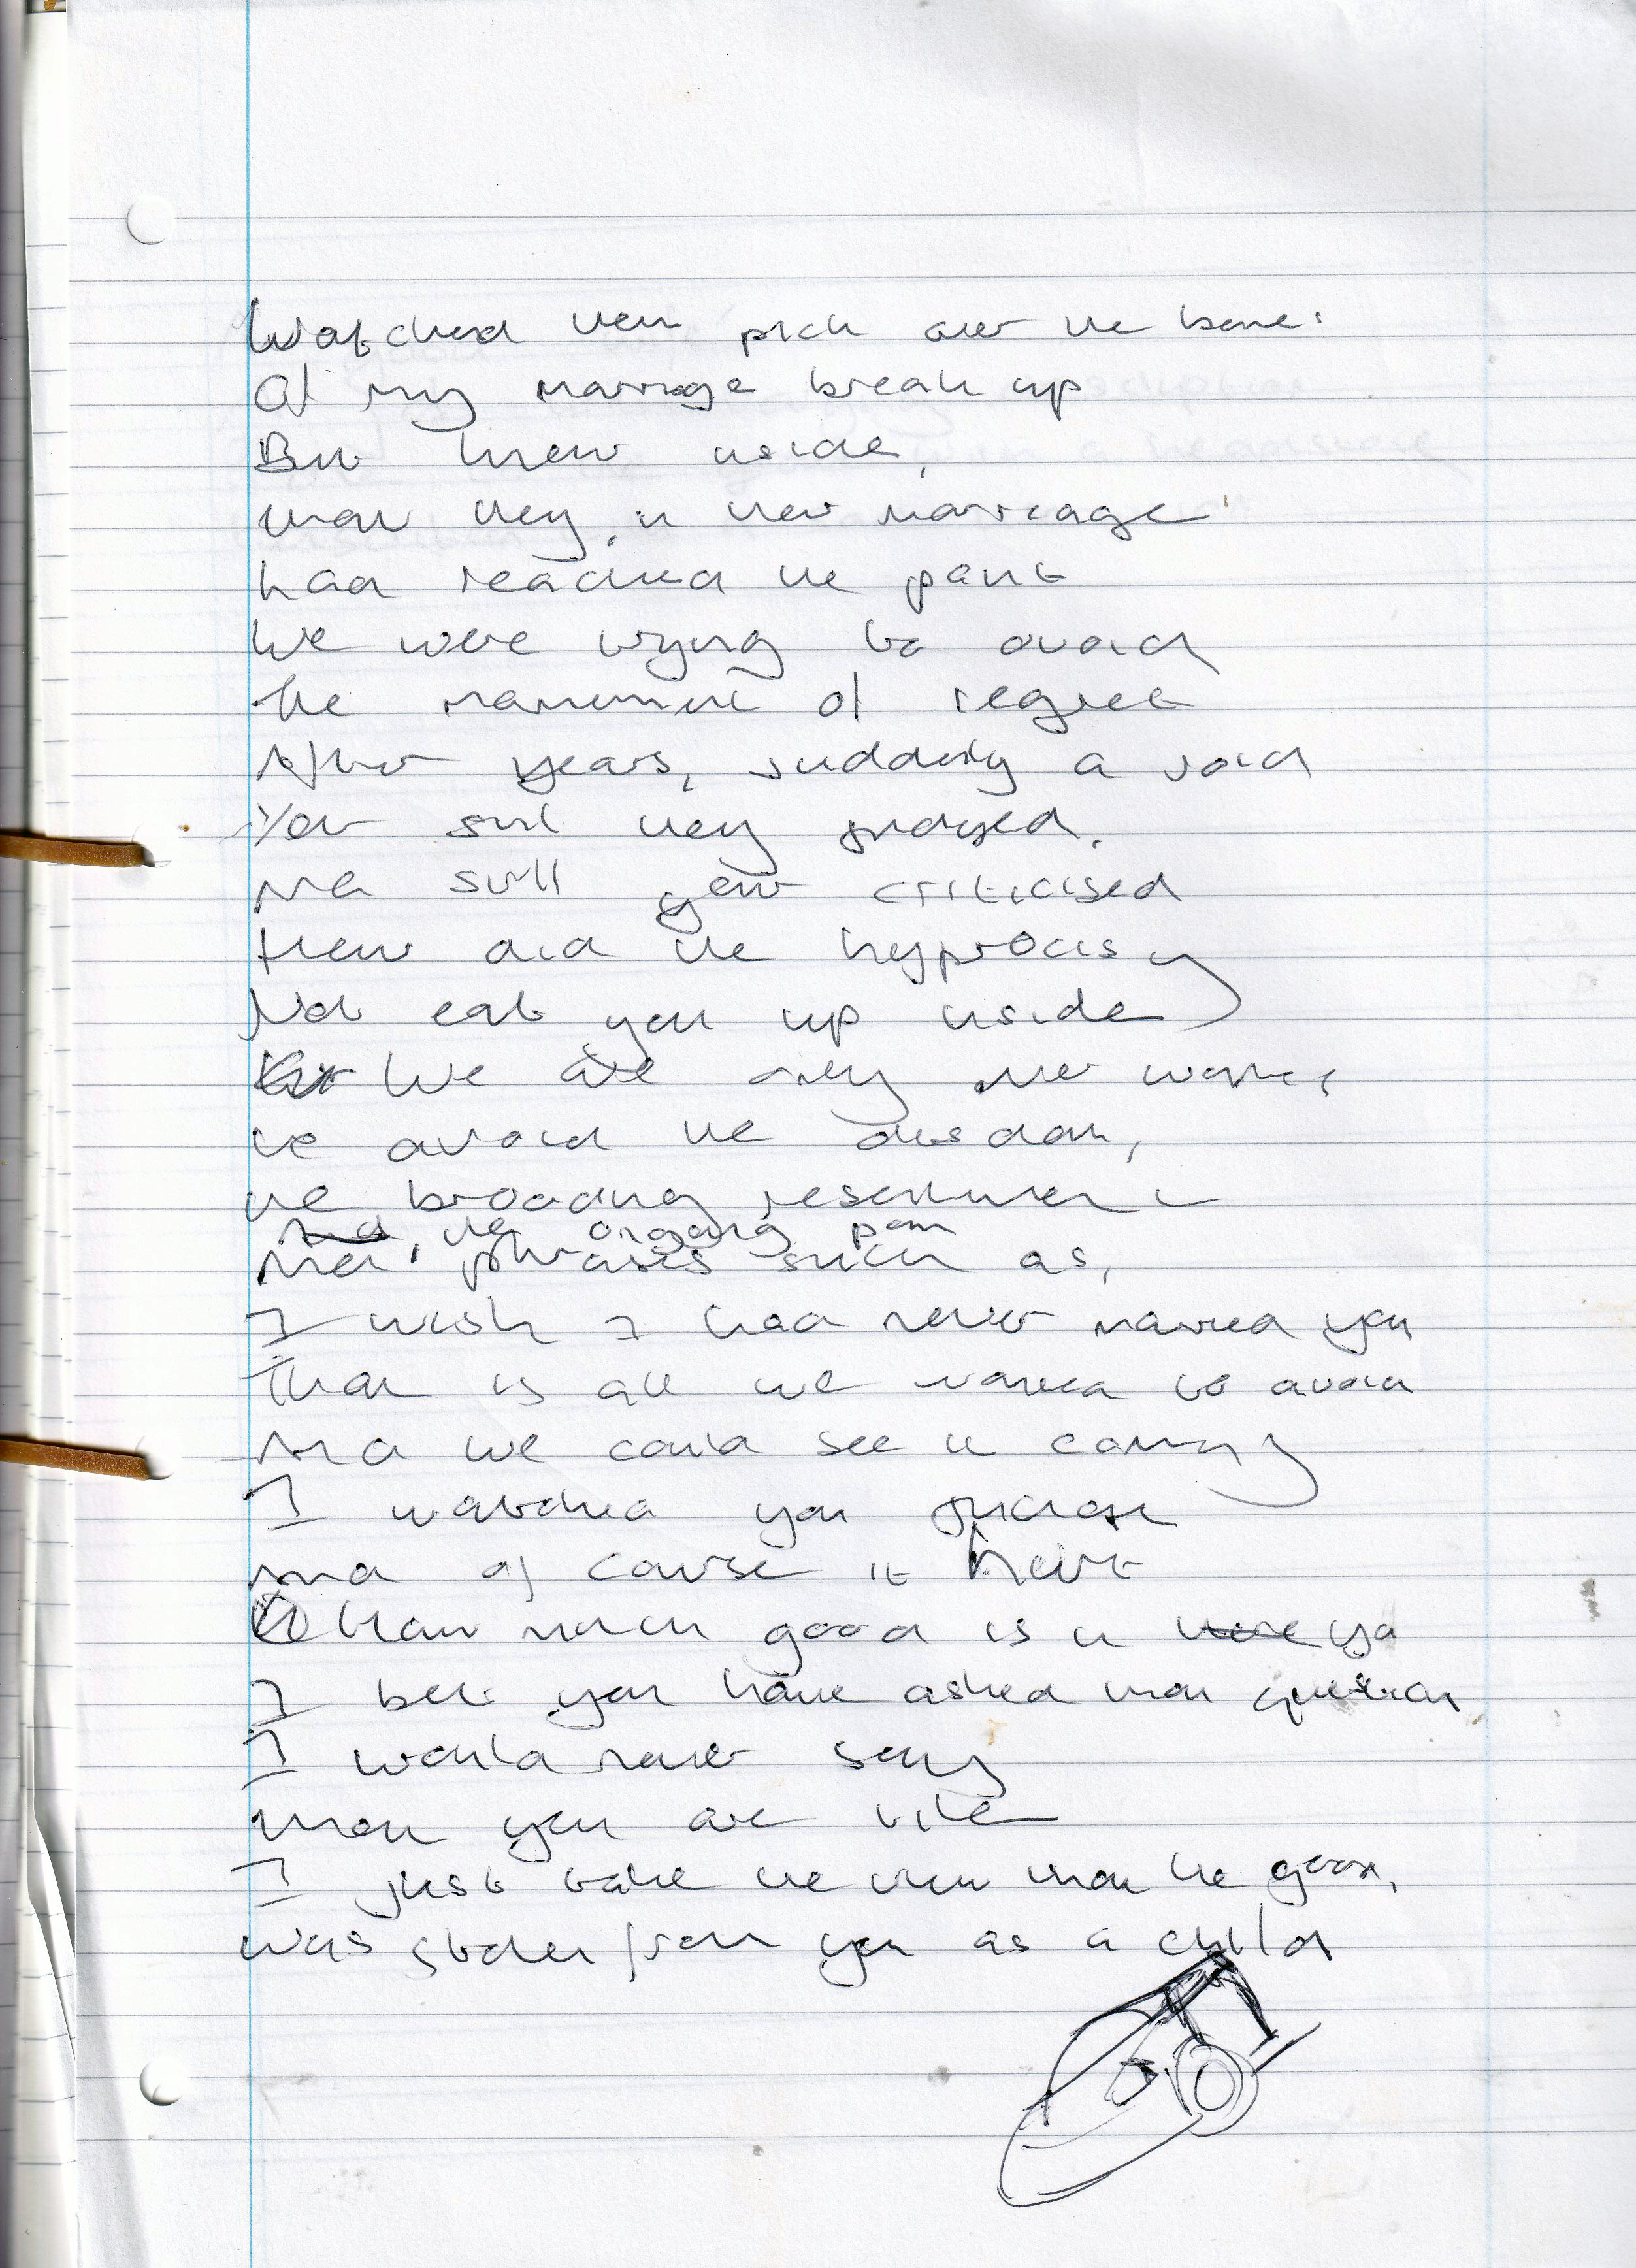 Watched them pick over the bones
Of my marriage break up
But knew inside,
that they, in their marriage
had reached the point
We were trying to avoid
The moment of regret
After years, suddenly a void
Yet still they judged,
And still you criticised
How did the hyprocisy
Not eat you up inside
We are only
to avoid the disdain,
the brooding resentment
the ongoing pain
And, phrases such as,
I wish I had never married you
That is all we wanted to avoid
And we could see it coming
I watched you
And of course it hurt
How much good is it
I bet you have asked that question
I would never say
that you are vile
I just take the view that the good,
was stolen from you as a child